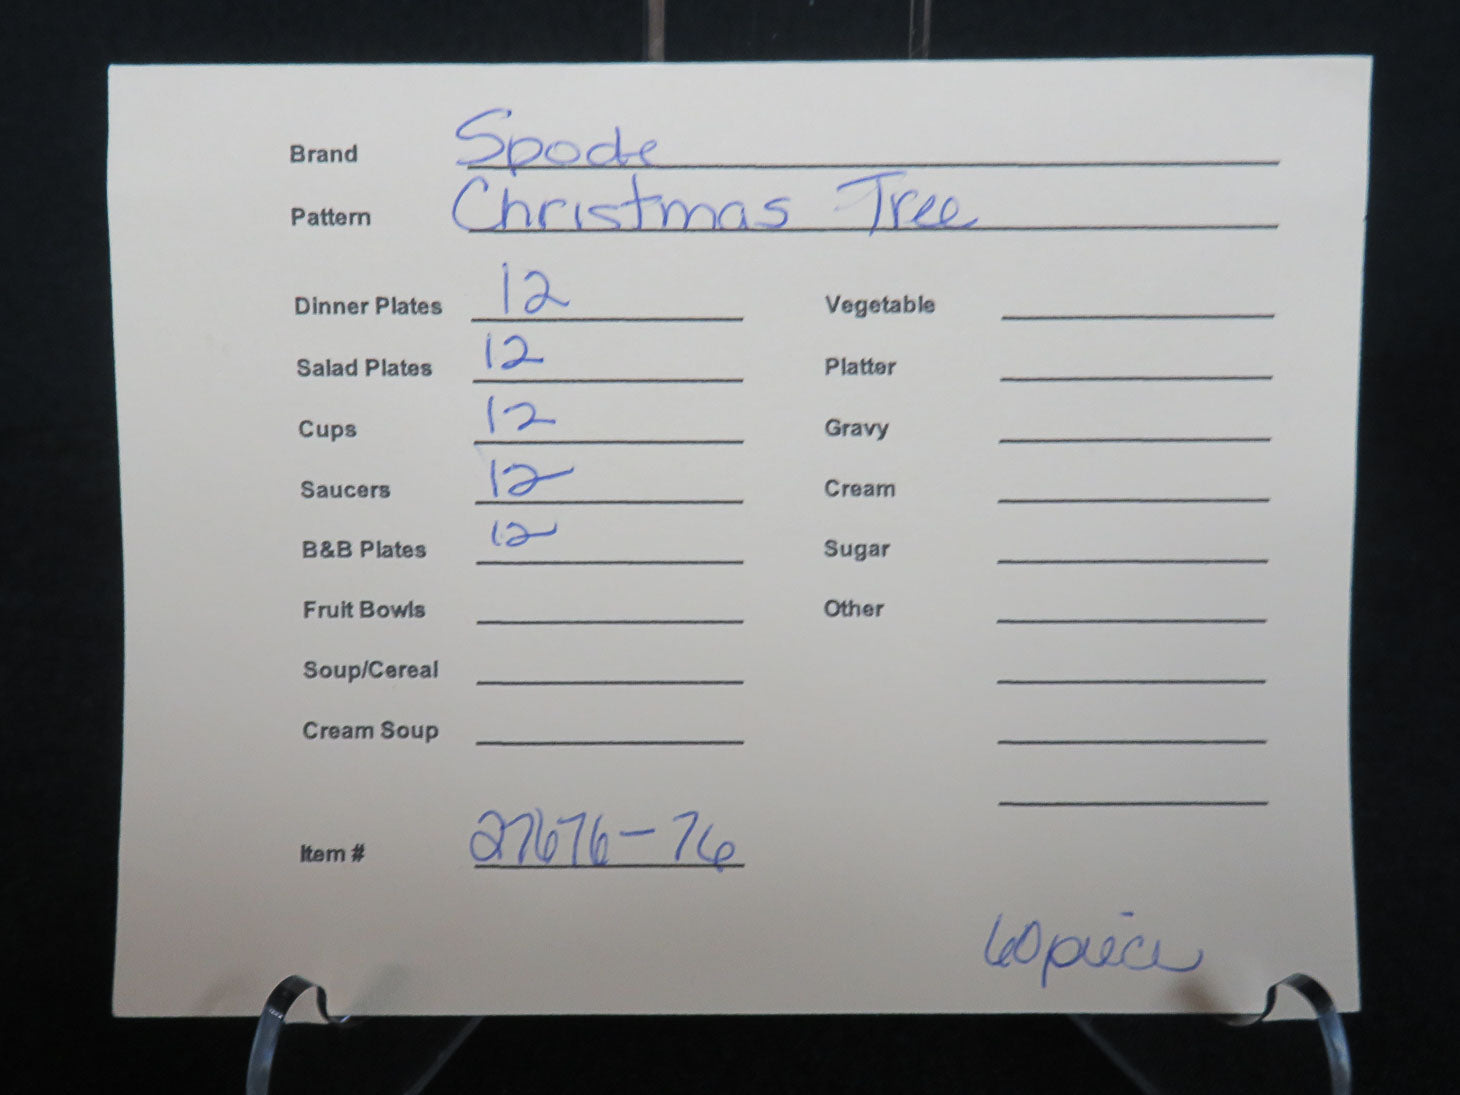 Brand Spode
Pattern Christmas Tree
Dinner Plates 12
Salad Plates 12
Cups 12
Saucers 12
B&B Plates 12
Fruit Bowls
Soup/Cereal
Cream Soup
Vegetable
Platter
Gravy
Cream
Sugar
Other
Item # 27676-76
60 piece